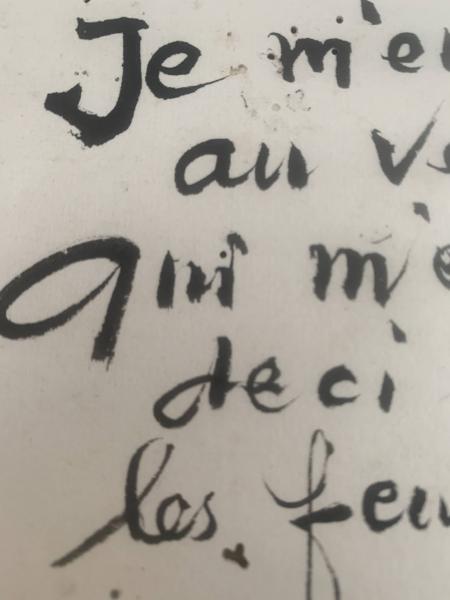 Je m'en
au ve
qui m'e
deci
les feu